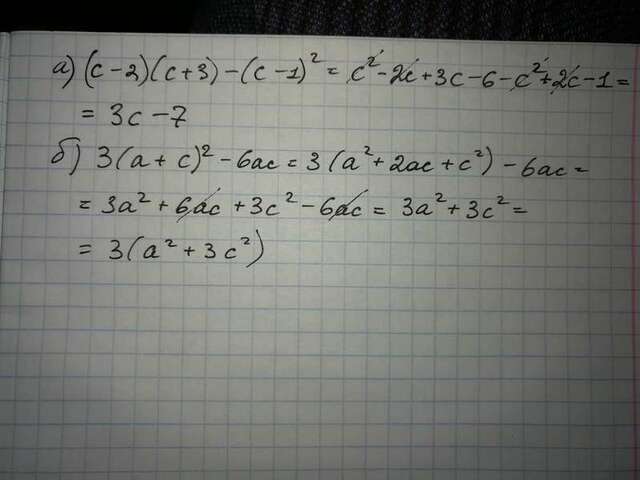 а) (c-2)(c+3)-(c-1)² = c²-2c+3c-6-c²+2c-1=
= 3c-7
б) 3(a+c)²-6ac = 3(a²+2ac+c²)-6ac=
= 3a²+6ac+3c²-6ac = 3a²+3c²=
= 3(a²+3c²)